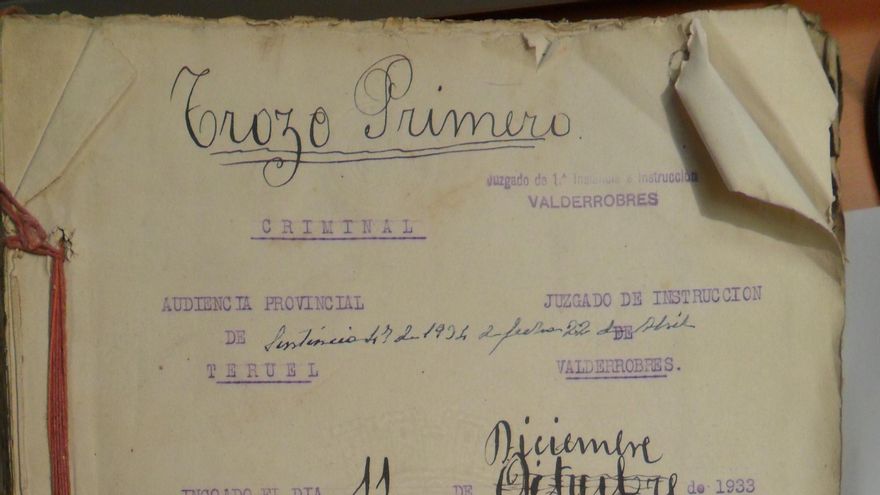 Trozo Primero.
Juzgado de 1.ª Instancia e Instrucción
VALDERROBRES
CRIMINAL
AUDIENCIA PROVINCIAL
JUZGADO DE INSTRUCCION
DE
Sentencia 47 de 1934 de fecha 22 de Abril
DE
TERUEL
VALDERROBRES.
Diciembre
INCOADO EL DIA 11 DE Octubre de 1933